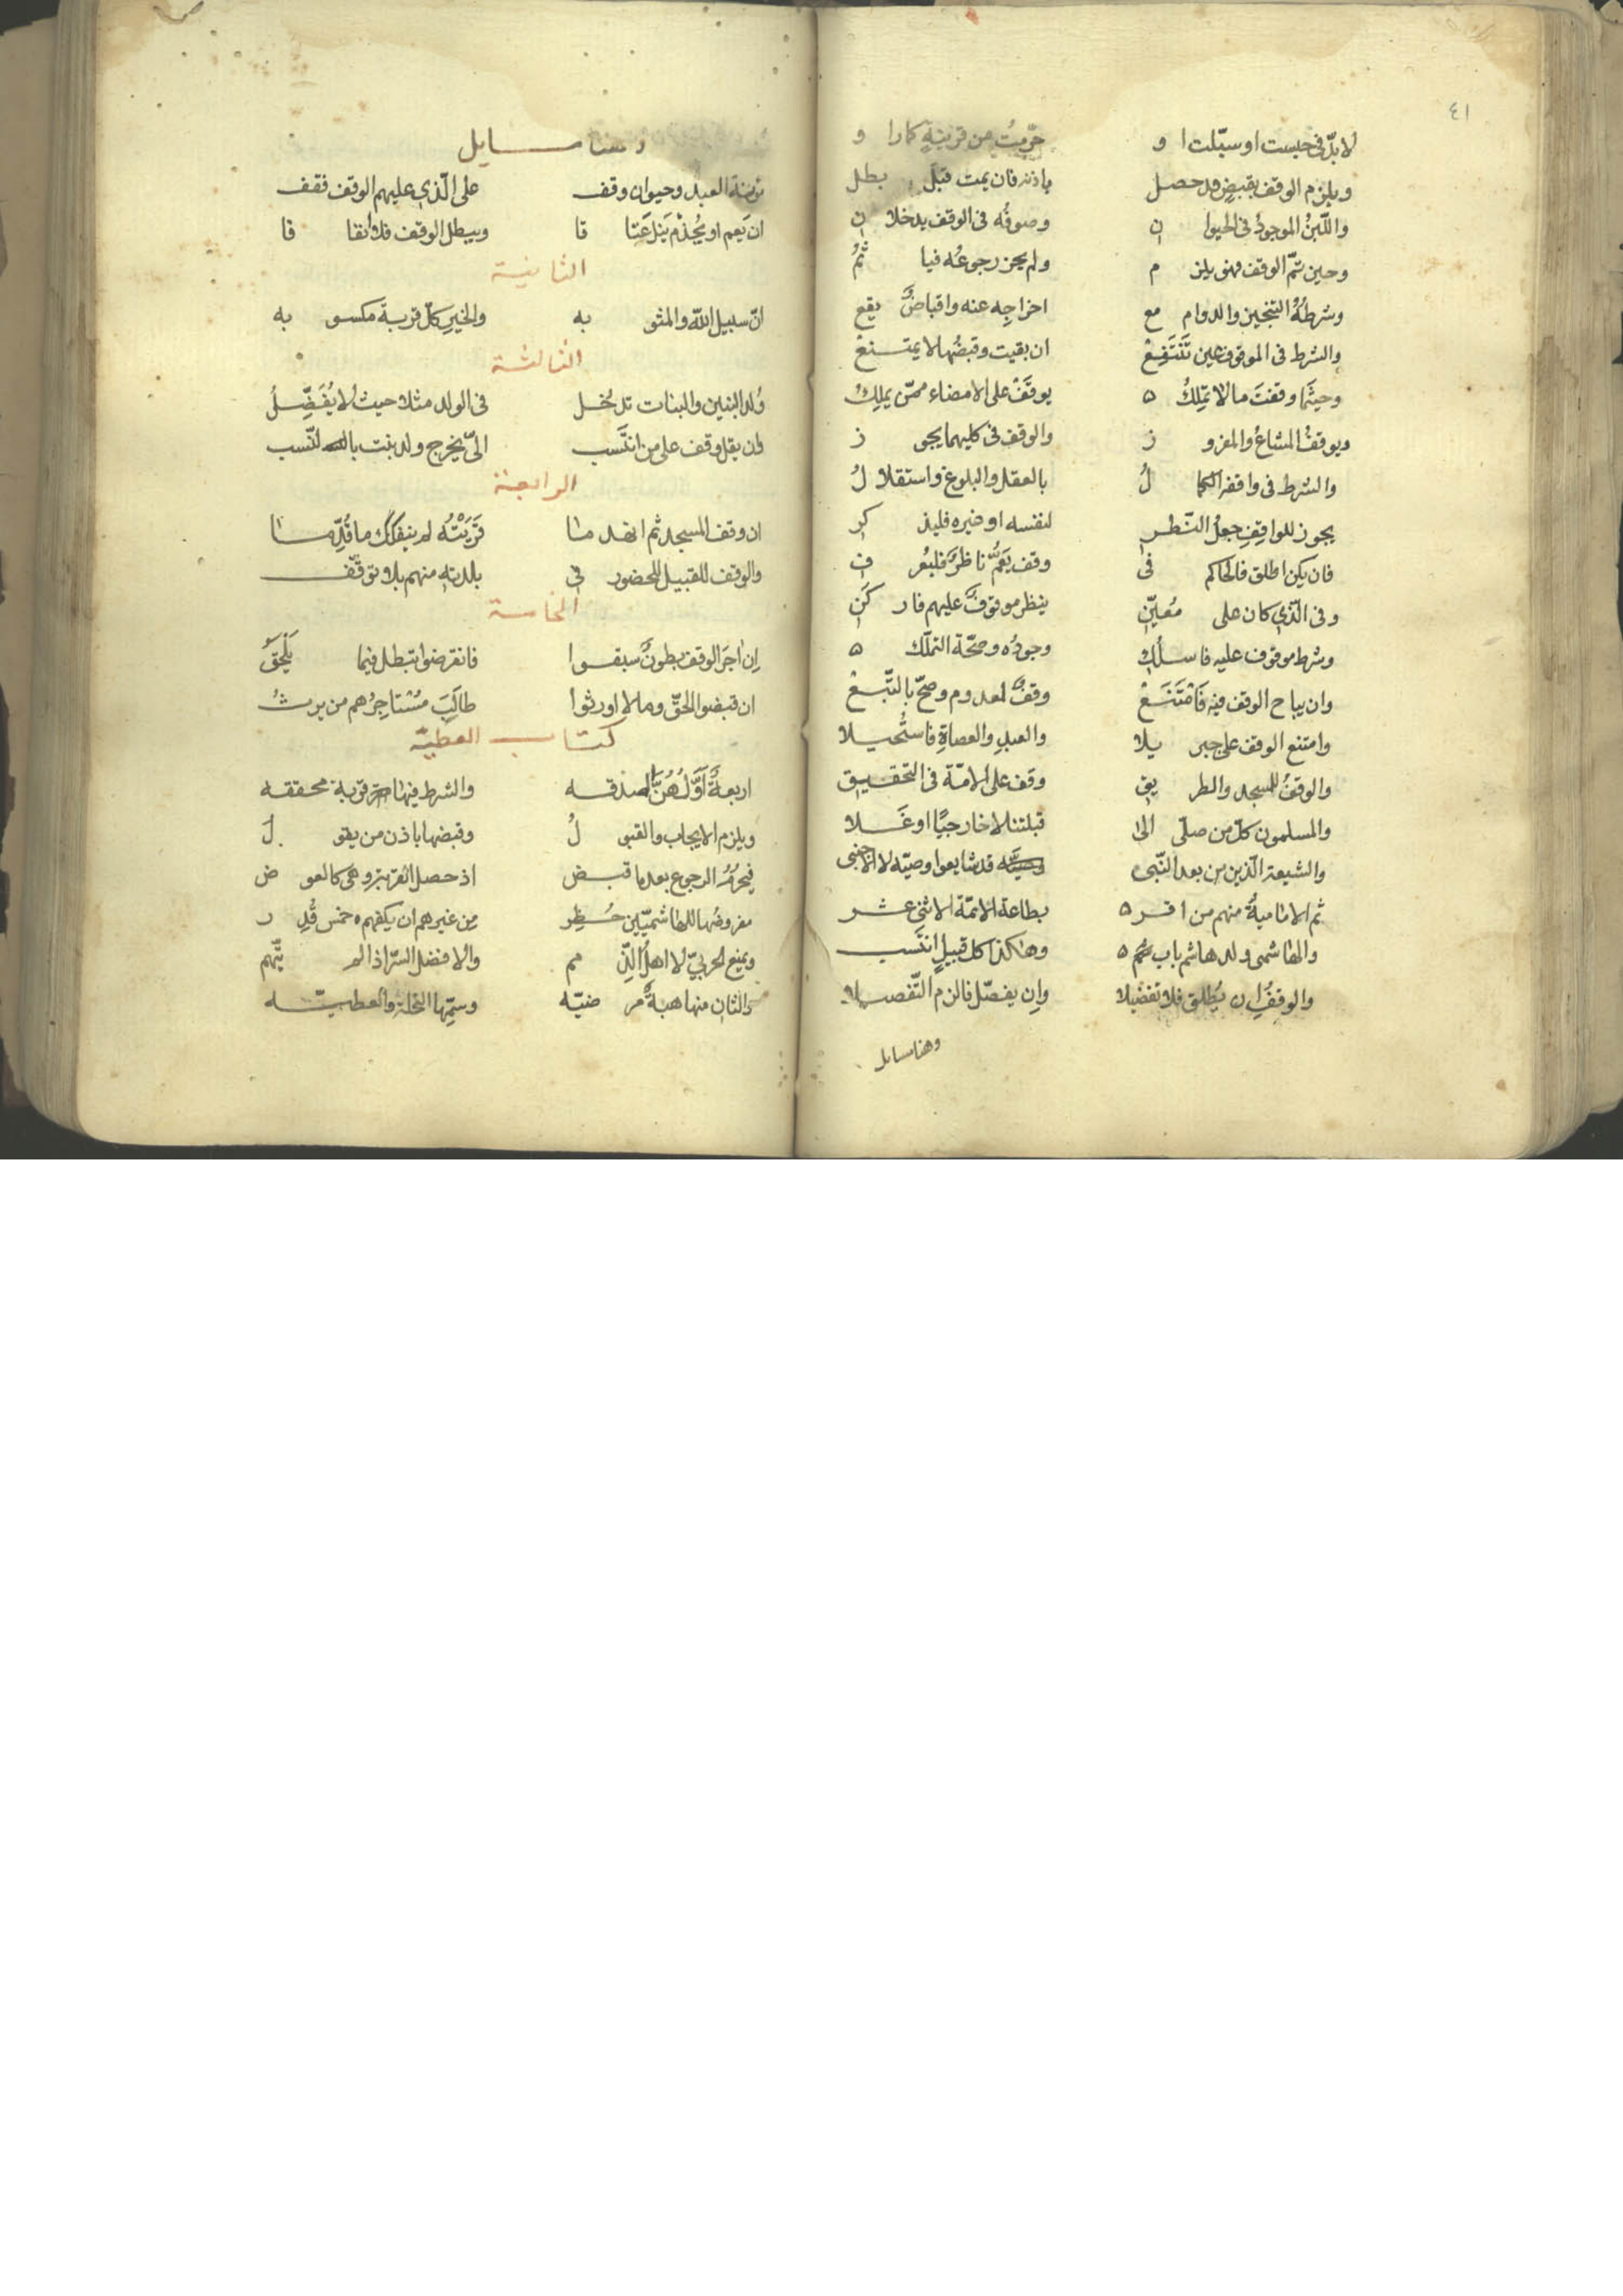 ٤١
لا بدّ في حبست او سبّلت ا و حرّمتُ من قرينةٍ كما را و
ويلزم الوقف بقبضٍ قد حصل باذنه فان يمت قبل بطل
واللّبنُ الموجودُ في الحيوا ن وصوفُه في الوقف يدخلا ن
وحين تمّ الوقف فهو يلز م ولم يجز رجوعُه فيا ثمُ
وشرطهُ التنجيز والدوام مع اخراجِه عنه واقباضٌ يقع
والشرط في الموقوف عين تَنتَفِعْ ان بقيت وقبضُها لا يمتنعْ
وحيثما وقفتَ ما لا تملِكُ ه يوقَفْ على الامضاء ممّن يملِكُ
ويوقفُ المشاعُ والمفرو ز والوقف في كليهما يجو ز
والشرط في واقفه الكما لُ بالعقل والبلوغ واستقلا لُ
يجوز للواقِفِ جعلُ النّظر لنفسه او غيره فليذ كر
فان يكن اطلق فالحاكم في وقف يَعُمُّ ناظرٌ فليعُر ف
وفي الّذي كان على مُعيّنِ ينظر موقوفٌ عليهم فار كَنِ
وشرط موقوف عليه فاسلُكِ وجودُه وصحّة التملّك ه
وان يباح الوقف فيه فَامْتَنَعْ وقفٌ لمعدوم وصحّ بالتّبعْ
وامتنع الوقف على جبر يلا والعبدِ والعصاةِ فاستُحيلا
والوقفُ للمسجد والطر يق وقف على الامّة في التحقيق
والمسلمون كلّ من صلّى الى قبلتنا لا خارجيًا او غَلا
والشيعة الّذين من بعد النّبي قد شايعوا وصيّه لا الاجنبي
ثم الاماميةُ منهم من اقر ه بطاعة الائمّة الاثني عشر
والهاشمي ولد هاشم باب ه وهاكذا كل قبيلٍ انتسب
والوقفُ ان يُطلق فلا تفضيلا وان يفصّل فالزم التّفصيلا
وهنا مسايل
وهنا مسايل
مؤنة العبد وحيوان وقف على الّذي عليهم الوقف فقف
ان يَعم او يُجذَم يَنلْ عَتا قا ويبطل الوقف فلا نفا قا
الثانية
انّ سبيل اللّه والمثو به والخيرِ كلّ قربة مكسو به
الثالثة
وُلد البنين والبنات تدخل في الولد مثلا حيث لا يُفَضِّلُ
وان يقل وقف على من انتَسب اليّ يخرج ولد بنت بالنسب
الرابعة
ان وقف المسجد ثم انهد ما قَرْيَتُه لم ينفكك ما قُدِّما
والوقف للقبيل للحضور في بلدته منهم بلا توقّف
الخامسة
اِن اجَر الوقف بطونٌ سبقوا فانقرضوا تبطل فيما يَلْحَقُ
ان قبضوا الحقّ وما لا اورثوا طالَبَ مُسْتاجِرُهم من يرثُ
كتاب العطيّة
اربعةٌ اَوَّلُهُنَّ الصدقه والشرط فيها قربة محققه
ويلزم الايجاب والقبو لُ وقبضها باذن من يقو لُ
فيحرُمُ الرجوع بعد ما قبض اذ حصل القربة وهي كالعو ض
مفروضُها للهاشميّين حُظِر مِن غيرهم ان يكفهم خمس قُدِ ر
ويمنع الحربيّ لا اهلُ الذِّ مم والافضل السرّ اذا لم يتّهم
والثانِ منها هبةٌ مر ضيّه وسمِّها النحلة والعطيّه